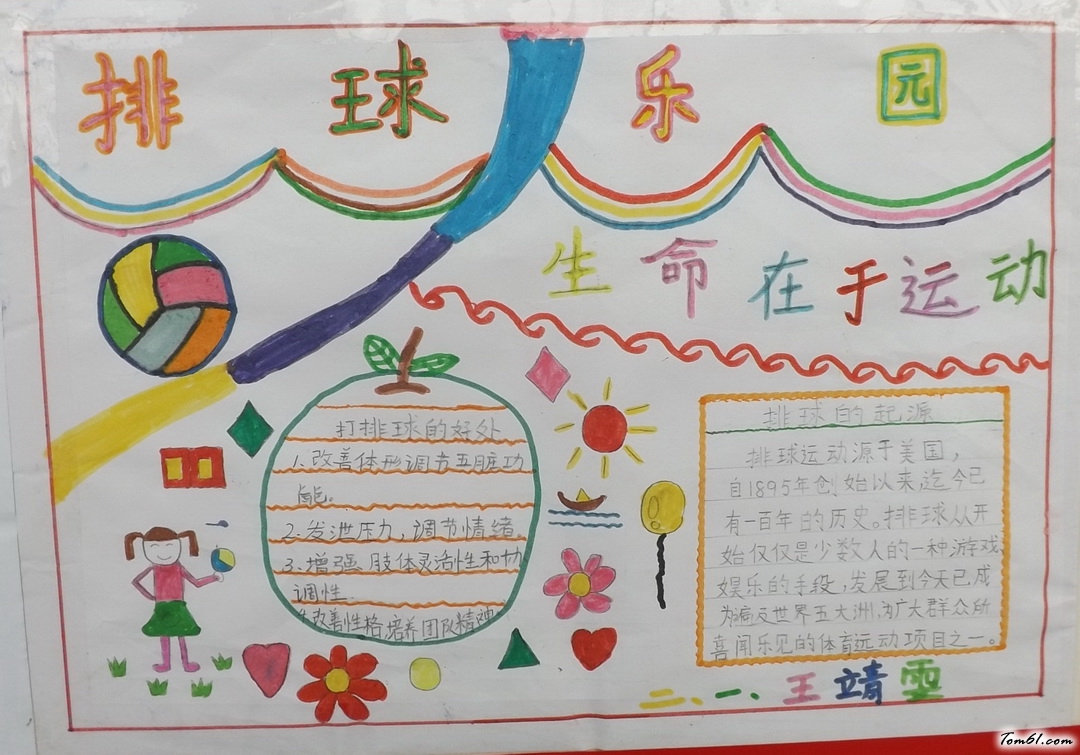 排球乐园
生命在于运动
打排球的好处
1.改善体形调节五脏功
能。
2.发泄压力,调节情绪
3.增强肢体灵活性和协
调性.
改善性格培养团队精神
排球的起源
排球运动源于美国,
自1895年创始以来,迄今已
有一百年的历史。排球从开
始仅仅是少数人的一种游戏、
娱乐的手段,发展到今天已成
为遍及世界五大洲,为广大群众所
喜闻乐见的体育运动项目之一。
二、一、王靖雯
Tom61.com